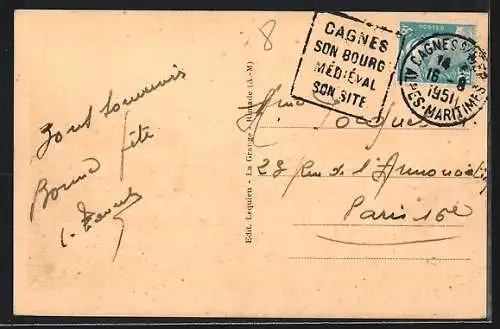 8
CAGNES
SON BOURG
MÉDIÉVAL
SON SITE
POSTES
CAGNES S/MER
14
16 - 8
1951
ALPES-MARITIMES
Bonne fête
Edit. Lequien - La Grange - Rimade (A.-M)
Mme
28 Rue de l'Annonciation
Paris 16e